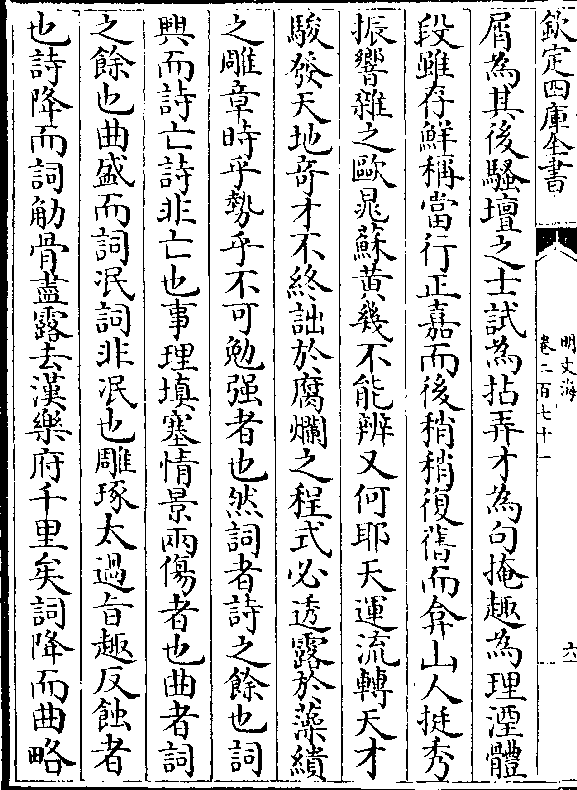 欽定四庫全書
明文海
卷二百七十一
六
屑為其後騷壇之士試為拈弄才為句掩趣為理湮體
段雖存鮮稱當行正嘉而後稍稍復舊而弇山人挺秀
振響雜之歐晁蘇黃幾不能辨又何耶天運流轉天才
駿發天地奇才不終詘於腐爛之程式必透露於藻繢
之雕章時乎勢乎不可勉强者也然詞者詩之餘也詞
興而詩亡詩非亡也事理填塞情景兩傷者也曲者詞
之餘也曲盛而詞泯詞非泯也雕琢太過旨趣反蝕者
也詩降而詞觔骨盡露去漢樂府千里矣詞降而曲略